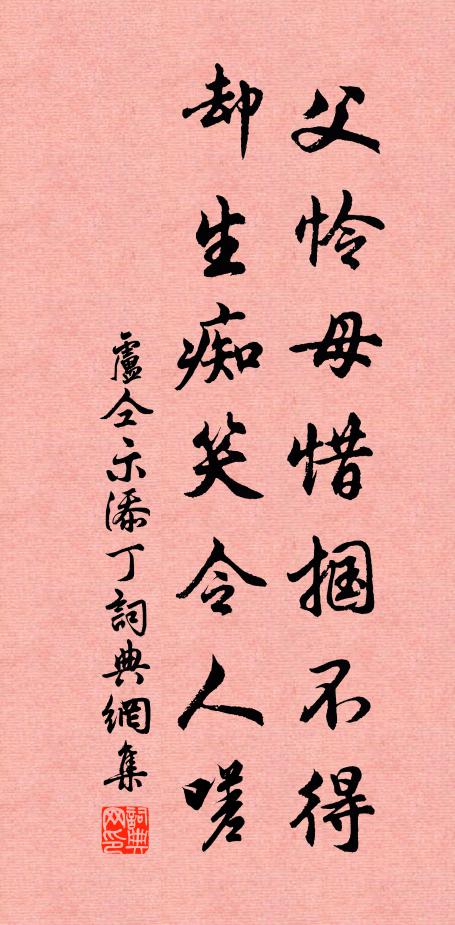 父怜母惜掴不得
却生痴笑令人嗟
盧仝示添丁詞典網集
詞典网印